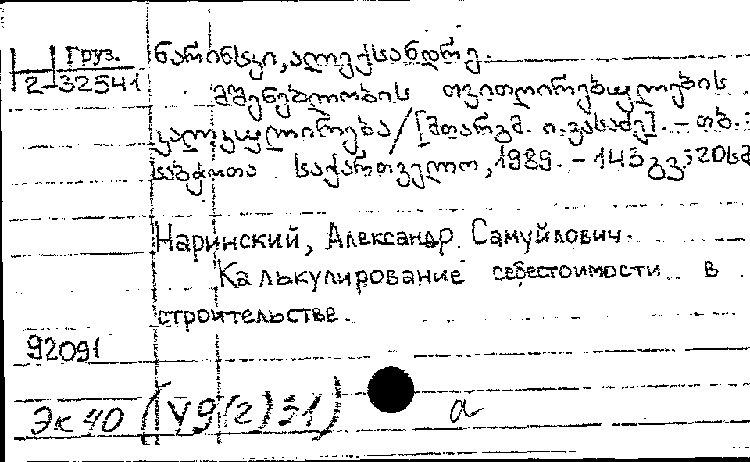 Груз. ნარინსკი, ალექსანდრე.
2-32541
მშენებლობის თვითღირებულების
კალკულირება / [მთარგმ. ი. ვასაძე]. – თბ.:
საბჭოთა საქართველო, 1989. – 143 გვ; 20სმ
Наринский, Александр Самуйлович.
Калькулирование себестоимости в
строительстве.
92091
Эк 40 (У9(2)31) а